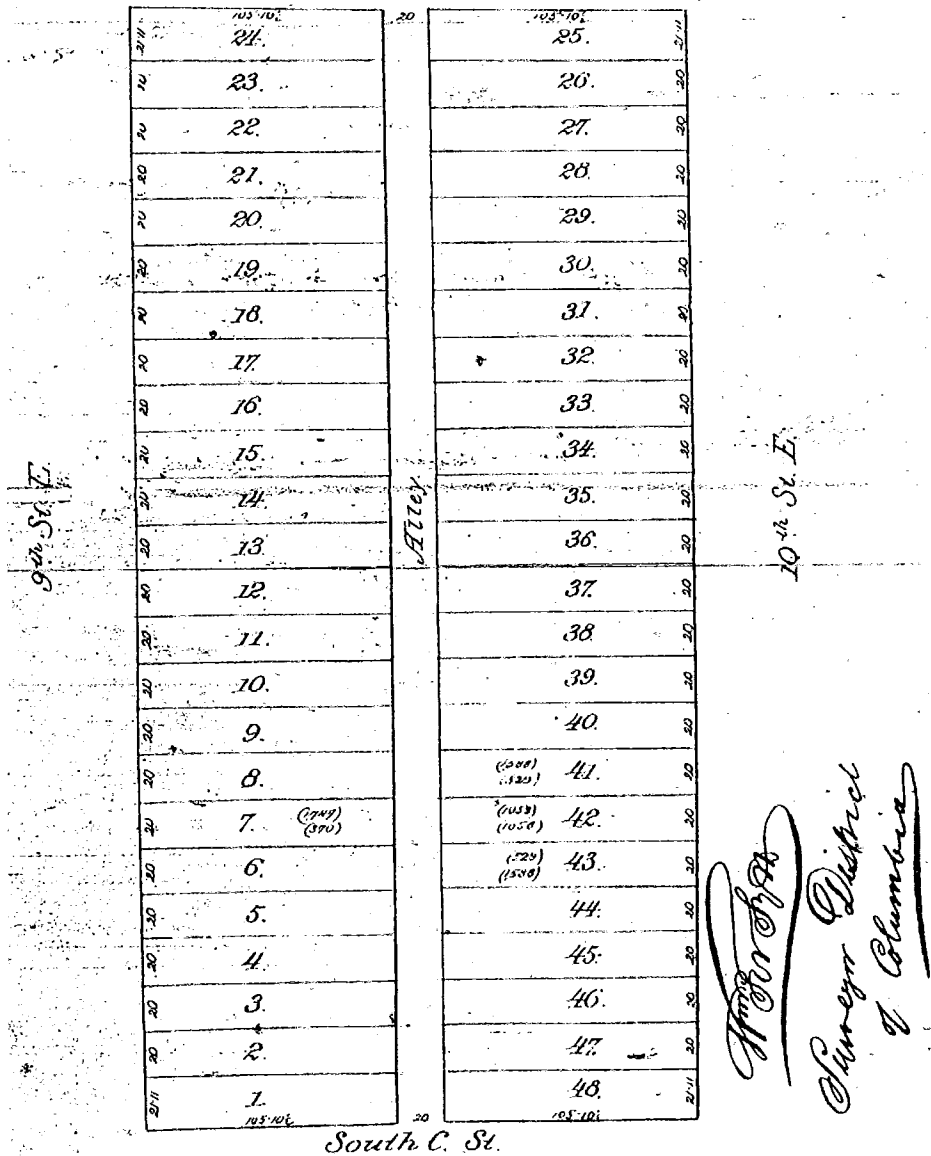 105·10½ 20 105·10½
21·11 24. 25. 21·11
20 23. 26. 20
20 22. 27. 20
20 21. 28. 20
20 20. 29. 20
20 19. 30. 20
20 18. 31. 20
20 17. 32. 20
20 16. 33. 20
20 15. 34. 20
20 14. 35. 20
20 13. 36. 20
20 12. 37. 20
20 11. 38. 20
20 10. 39. 20
20 9. 40. 20
20 8. 41. 20
20 7. (1058) 42. 20
20 6. 43. 20
20 5. 44. 20
20 4. 45. 20
20 3. 46. 20
20 2. 47. 20
21·11 1. 48. 21·11
105·10½ 20 105·10½
9th St. E.
Alley
10th St. E.
South C. St.
Surveyor District
of Columbia